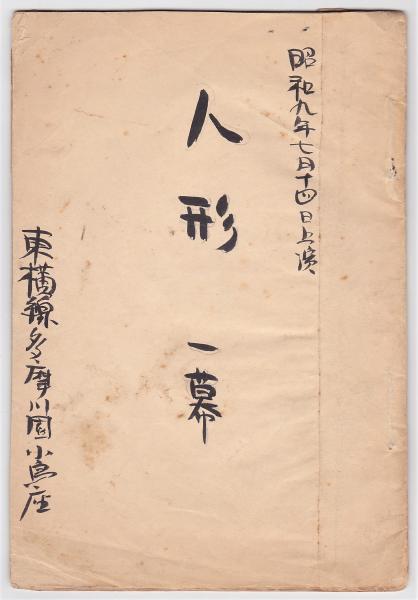 昭和九年七月十四日上演
人形 一幕
東横線多摩川園小鳥座